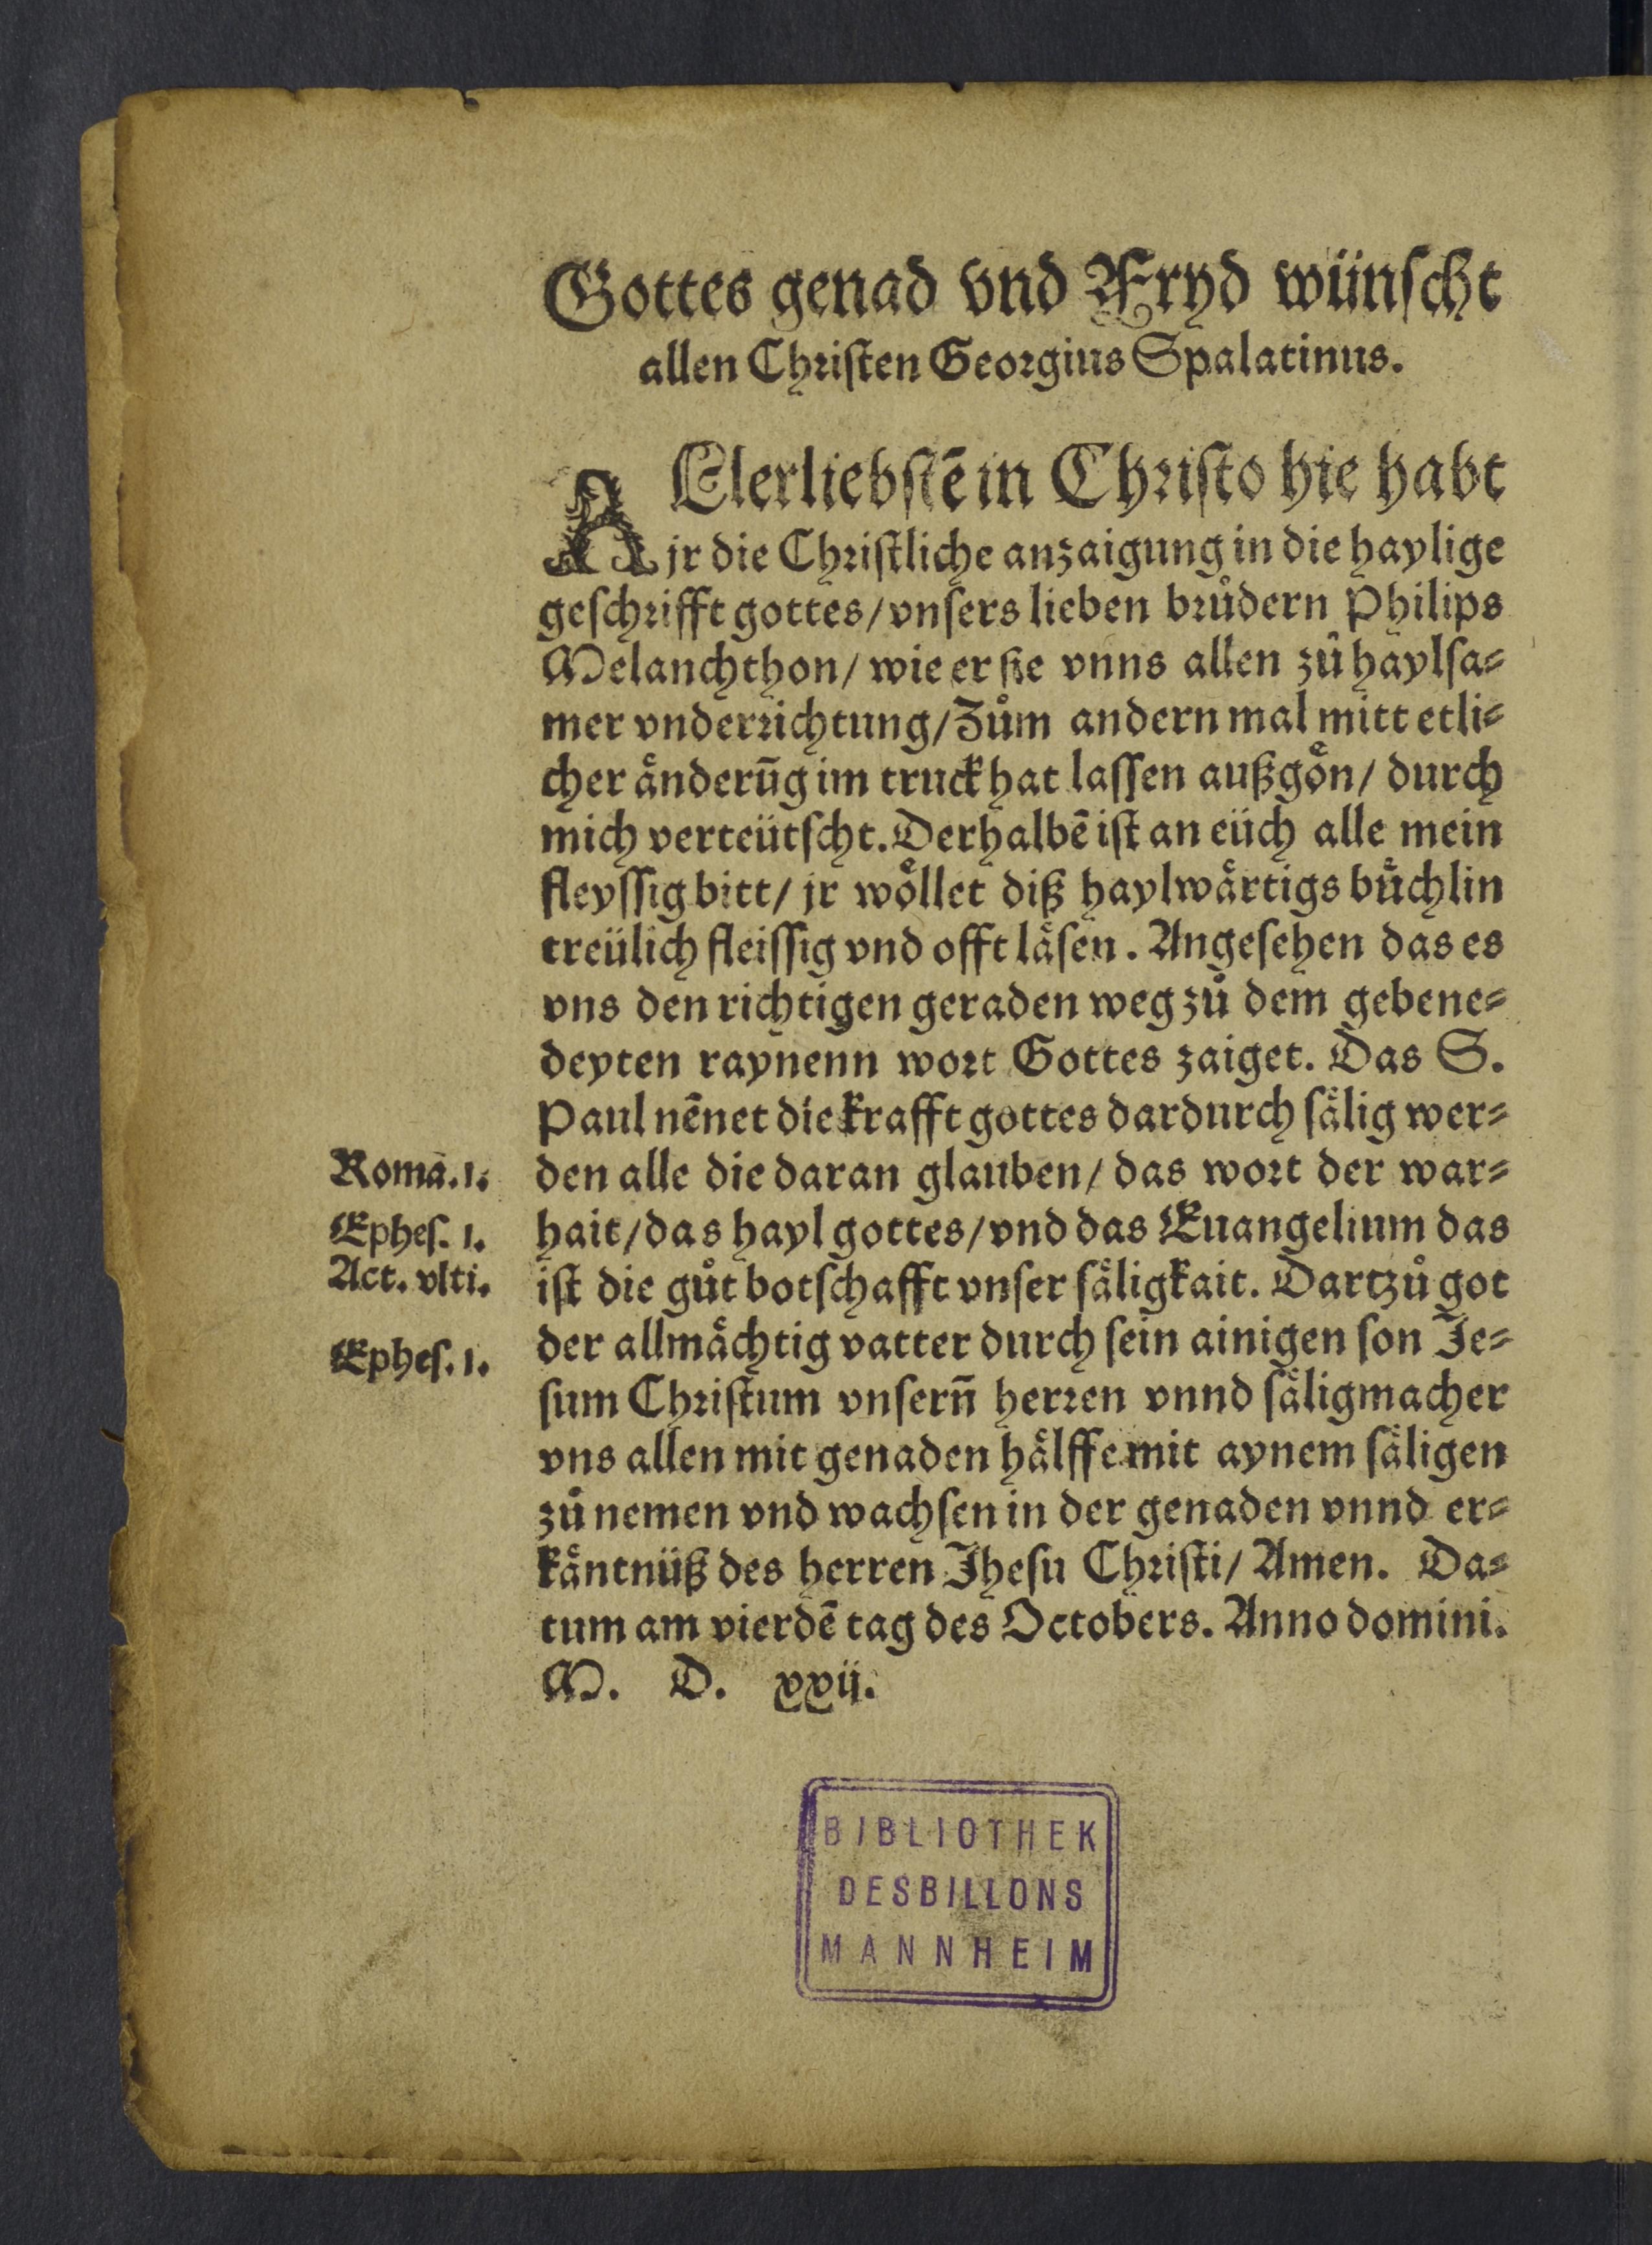 Gottes genad vnd Fryd wünſcht
allen Chꝛiſten Geoꝛgius Spalatinus.
ALlerliebſtē in Chꝛiſto hie habt
jr die Chꝛiſtliche anzaigung in die haylige
geſchꝛifft gottes/ vnſers lieben bꝛuͦdern Philips
Melanchthon/ wie er ſie vnns allen zuͦ haylſa⸗
mer vnderꝛichtung/ Zuͦm andern mal mitt etli⸗
cher aͤnderūg im truck hat laſſen außgoͤn/ durch
mich verteütſcht. Derhalbē iſt an eüch alle mein
fleyſſig bitt/ jr woͤllet diß haylwaͤrtigs buͤchlin
treülich fleiſſig vnd offt laͤſen. Angeſehen das es
vns den richtigen geraden weg zuͦ dem gebene⸗
deyten raynenn woꝛt Gottes zaiget. Das S.
Paul nēnet die krafft gottes dardurch ſaͤlig wer⸗
Romā. 1. den alle die daran glauben/ das woꝛt der war⸗
Epheſ. 1. hait/ das hayl gottes/ vnd das Euangelium das
Act. vlti. iſt die guͦt botſchafft vnſer ſaͤligkait. Dartzuͦ got
Epheſ. 1. der allmaͤchtig vatter durch ſein ainigen ſon Je⸗
ſum Chꝛiſtum vnſern̄ herꝛen vnnd ſaͤligmacher
vns allen mit genaden haͤlffe mit aynem ſaͤligen
zuͦ nemen vnd wachſen in der genaden vnnd er⸗
kaͤntnüß des herren Jheſu Chꝛiſti/ Amen. Da⸗
tum am vierdē tag des Octobers. Anno domini.
M. D. xxij.
BIBLIOTHEK
DESBILLONS
MANNHEIM